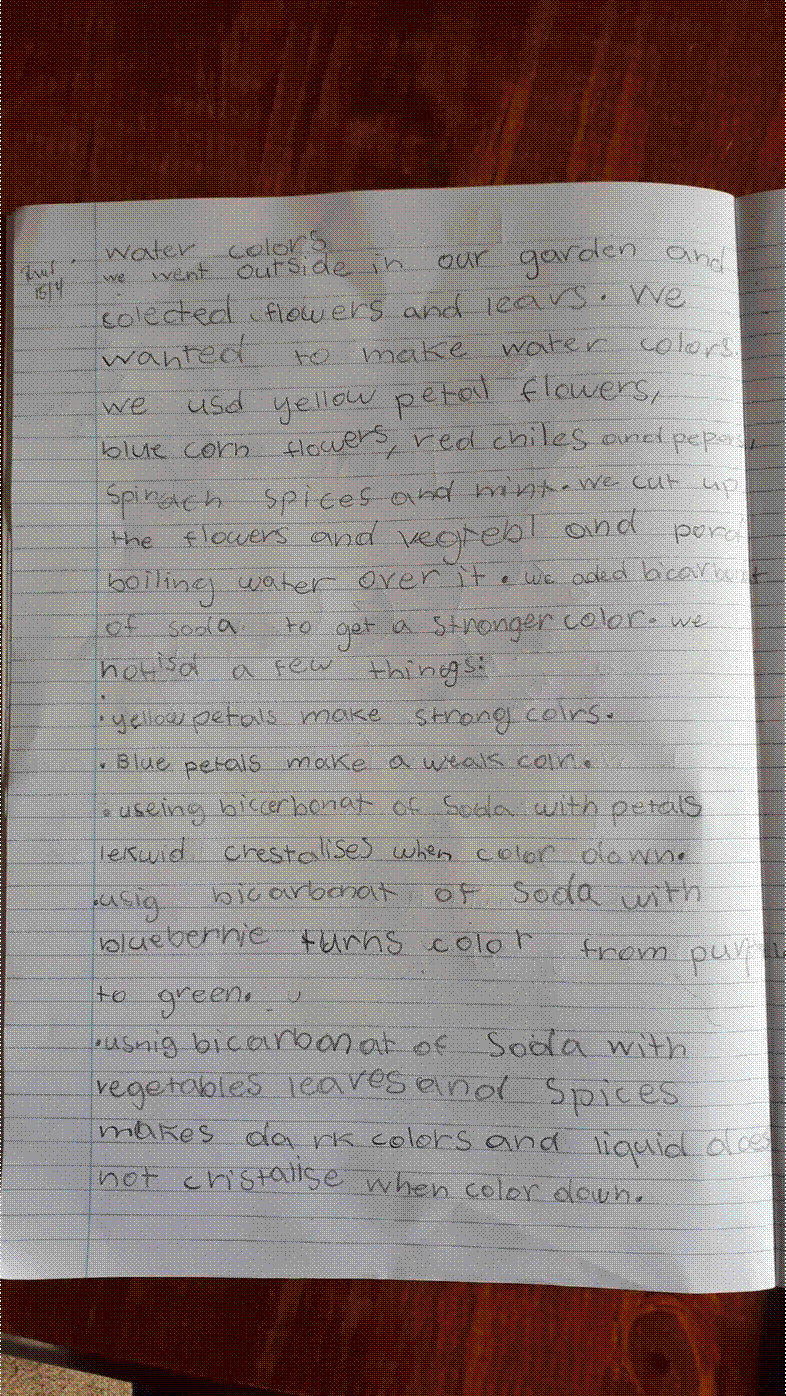 water colors
thu 15/4
we went outside in our garden and
colected flowers and leavs. we
wanted to make water colors.
we usd yellow petal flowers,
blue corn flowers, red chiles and
Spinach spices and mint. we cut up
the flowers and vegtebl and
boiling water over it. we aded
of soda to get a stronger color. we
notisd a few things:
• yellow petals make strong colrs.
• Blue petals make a weak colr.
• useing biccerbonat of Soda with petals
lekwid crestalises when color down.
• usig bicarbonat of soda with
bluebernie turns color from
to green.
• usnig bicarbonat of Soda with
vegetables leaves and spices
makes dark colors and liquid does
not cristalise when color down.